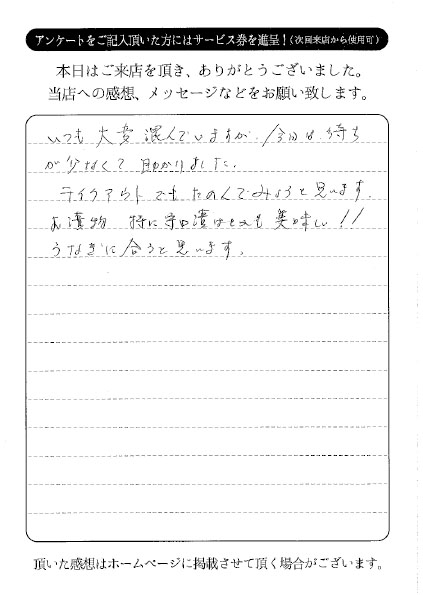 アンケートをご記入頂いた方にはサービス券を進呈!(次回来店から使用可)
本日はご来店を頂き、ありがとうございました。
当店への感想、メッセージなどをお願い致します。
いつも大変混んでいますが、今回は待ち
が少なくて助かりました。
テイクアウトでもたのんでみようと思います。
お漬物 特に守口漬はとても美味しい!!
うなぎに合うと思います。
頂いた感想はホームページに掲載させて頂く場合がございます。